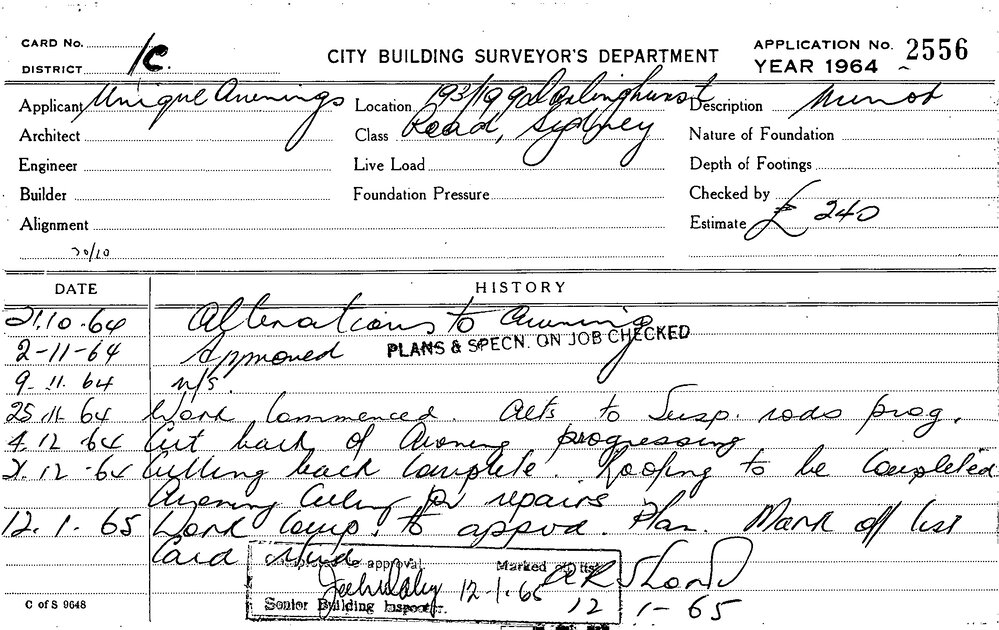 CARD No.
DISTRICT 1C.
CITY BUILDING SURVEYOR'S DEPARTMENT
APPLICATION No. 2556
YEAR 1964
Applicant Unique Awnings Location 193/199 Darlinghurst Description Minor
Architect Class Road, Sydney Nature of Foundation
Engineer Live Load Depth of Footings
Builder Foundation Pressure Checked by
Alignment Estimate £ 240
20/10
DATE HISTORY
21.10.64 Alterations to Awning
2-11-64 Approved PLANS & SPECN. ON JOB CHECKED
9.11.64 n/s.
25.11.64 Work Commenced. Alts to Susp. rods prog.
4.12.64 Cut back of Awning progressing
21.12.64 Cutting back Complete. Roofing to be Completed
Awning Ceiling for repairs
12.1.65 Work Comp. to appvd. Plan. Mark off list
Card
approval Marked off list
12-1-65
Senior Building Inspector.
12 1-65
C of S 9648